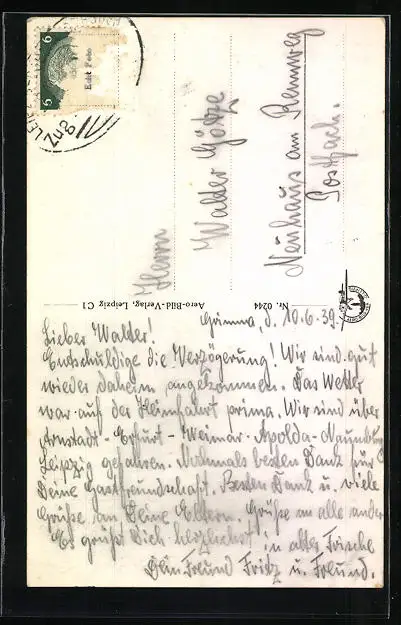 Zug
6
5
Echt Foto
Herrn
Walter Götze
Neuhaus am Rennweg
Postfach.
Nr. 0244
Aero-Bild-Verlag, Leipzig C1
Grimma, d. 10.6.39.
Lieber Walter!
Entschuldige die Verzögerung! Wir sind gut
wieder daheim angekommen. Das Wetter
war auf der Heimfahrt prima. Wir sind über
Arnstadt - Erfurt - Weimar - Apolda - Naumburg
Leipzig gefahren. Nochmals besten Dank für
Deine Gastfreundschaft. Besten Dank u. viele
Grüße an Deine Eltern. Grüße an alle andern
Es grüßt Dich herzlichst in alter Frische
Dein Freund Fritz u. Freund.